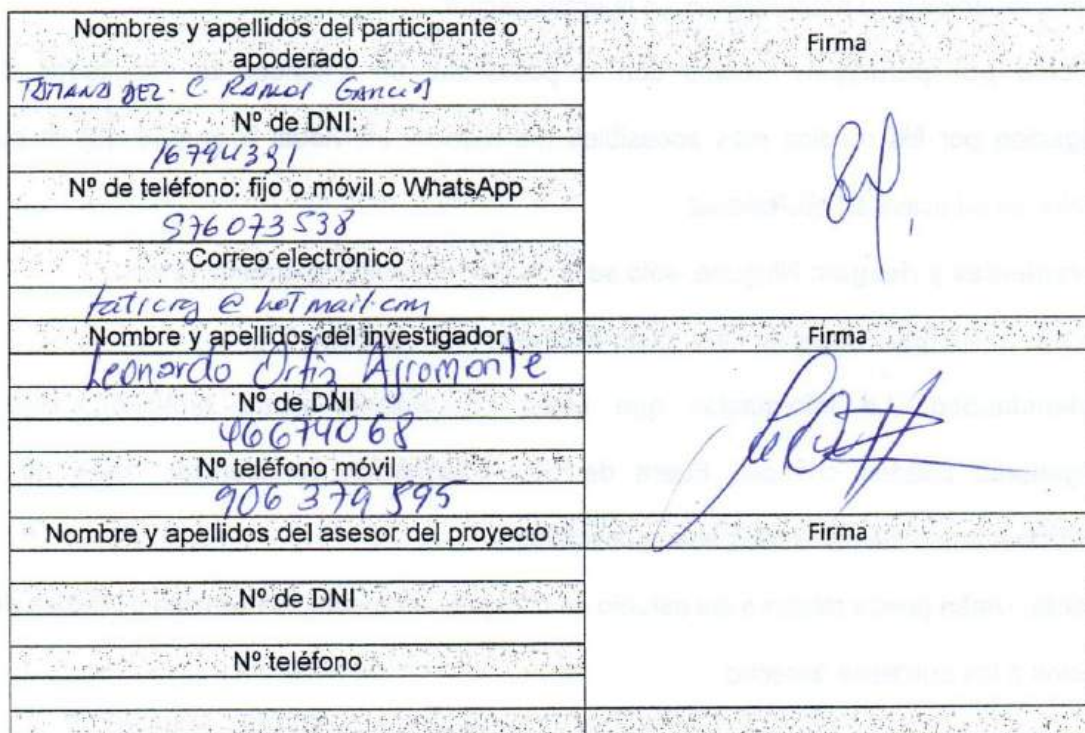 Nombres y apellidos del participante o
apoderado
Firma
TATIANA DEL. C RAMOS GARCIA
Nº de DNI:
16794391
Nº de teléfono: fijo o móvil o WhatsApp
976073538
Correo electrónico
taticrg@hotmail.com
Nombre y apellidos del investigador
Firma
Leonardo Ortiz Agromonte
Nº de DNI
46674068
Nº teléfono móvil
906379595
Nombre y apellidos del asesor del proyecto
Firma
Nº de DNI
Nº teléfono